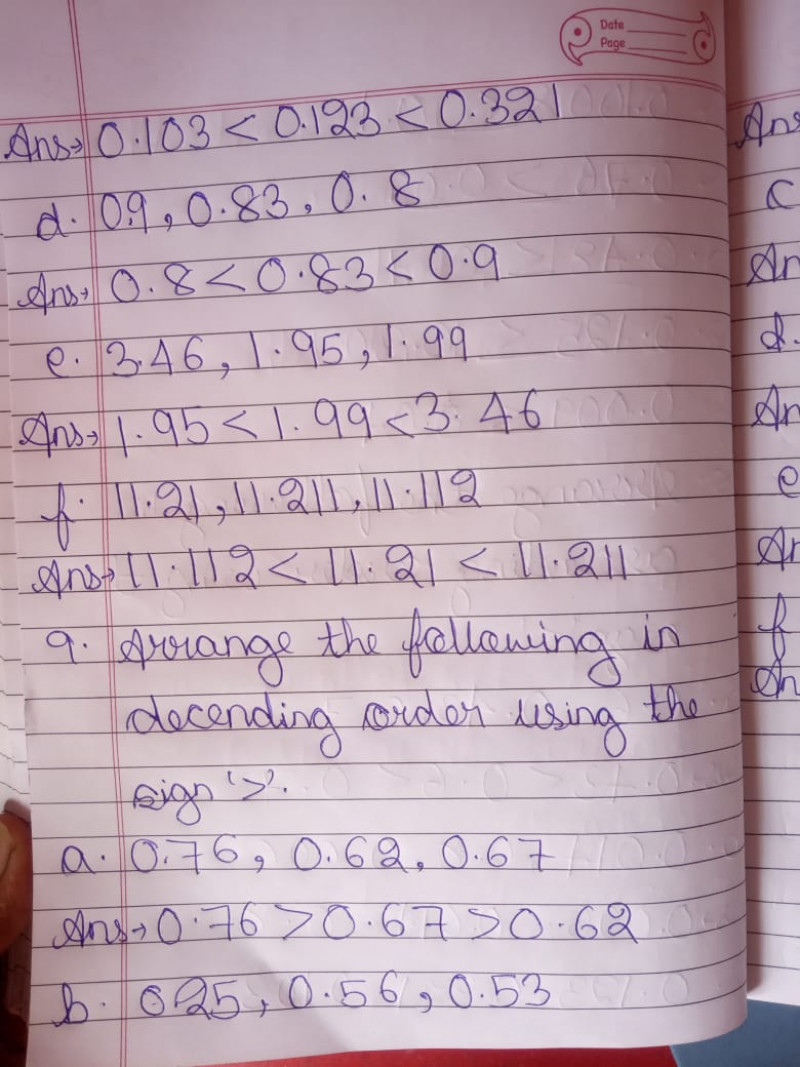 Date
Page
Ans→ 0.103 < 0.123 < 0.321
d. 0.9, 0.83, 0.8
Ans→ 0.8 < 0.83 < 0.9
e. 3.46, 1.95, 1.99
Ans→ 1.95 < 1.99 < 3.46
f. 11.21, 11.211, 11.112
Ans→ 11.112 < 11.21 < 11.211
9. Arrange the following in
decending order using the
sign '>'.
a. 0.76, 0.62, 0.67
Ans→ 0.76 > 0.67 > 0.62
b. 0.25, 0.56, 0.53
Ans
c
An
d.
An
e
An
f
An